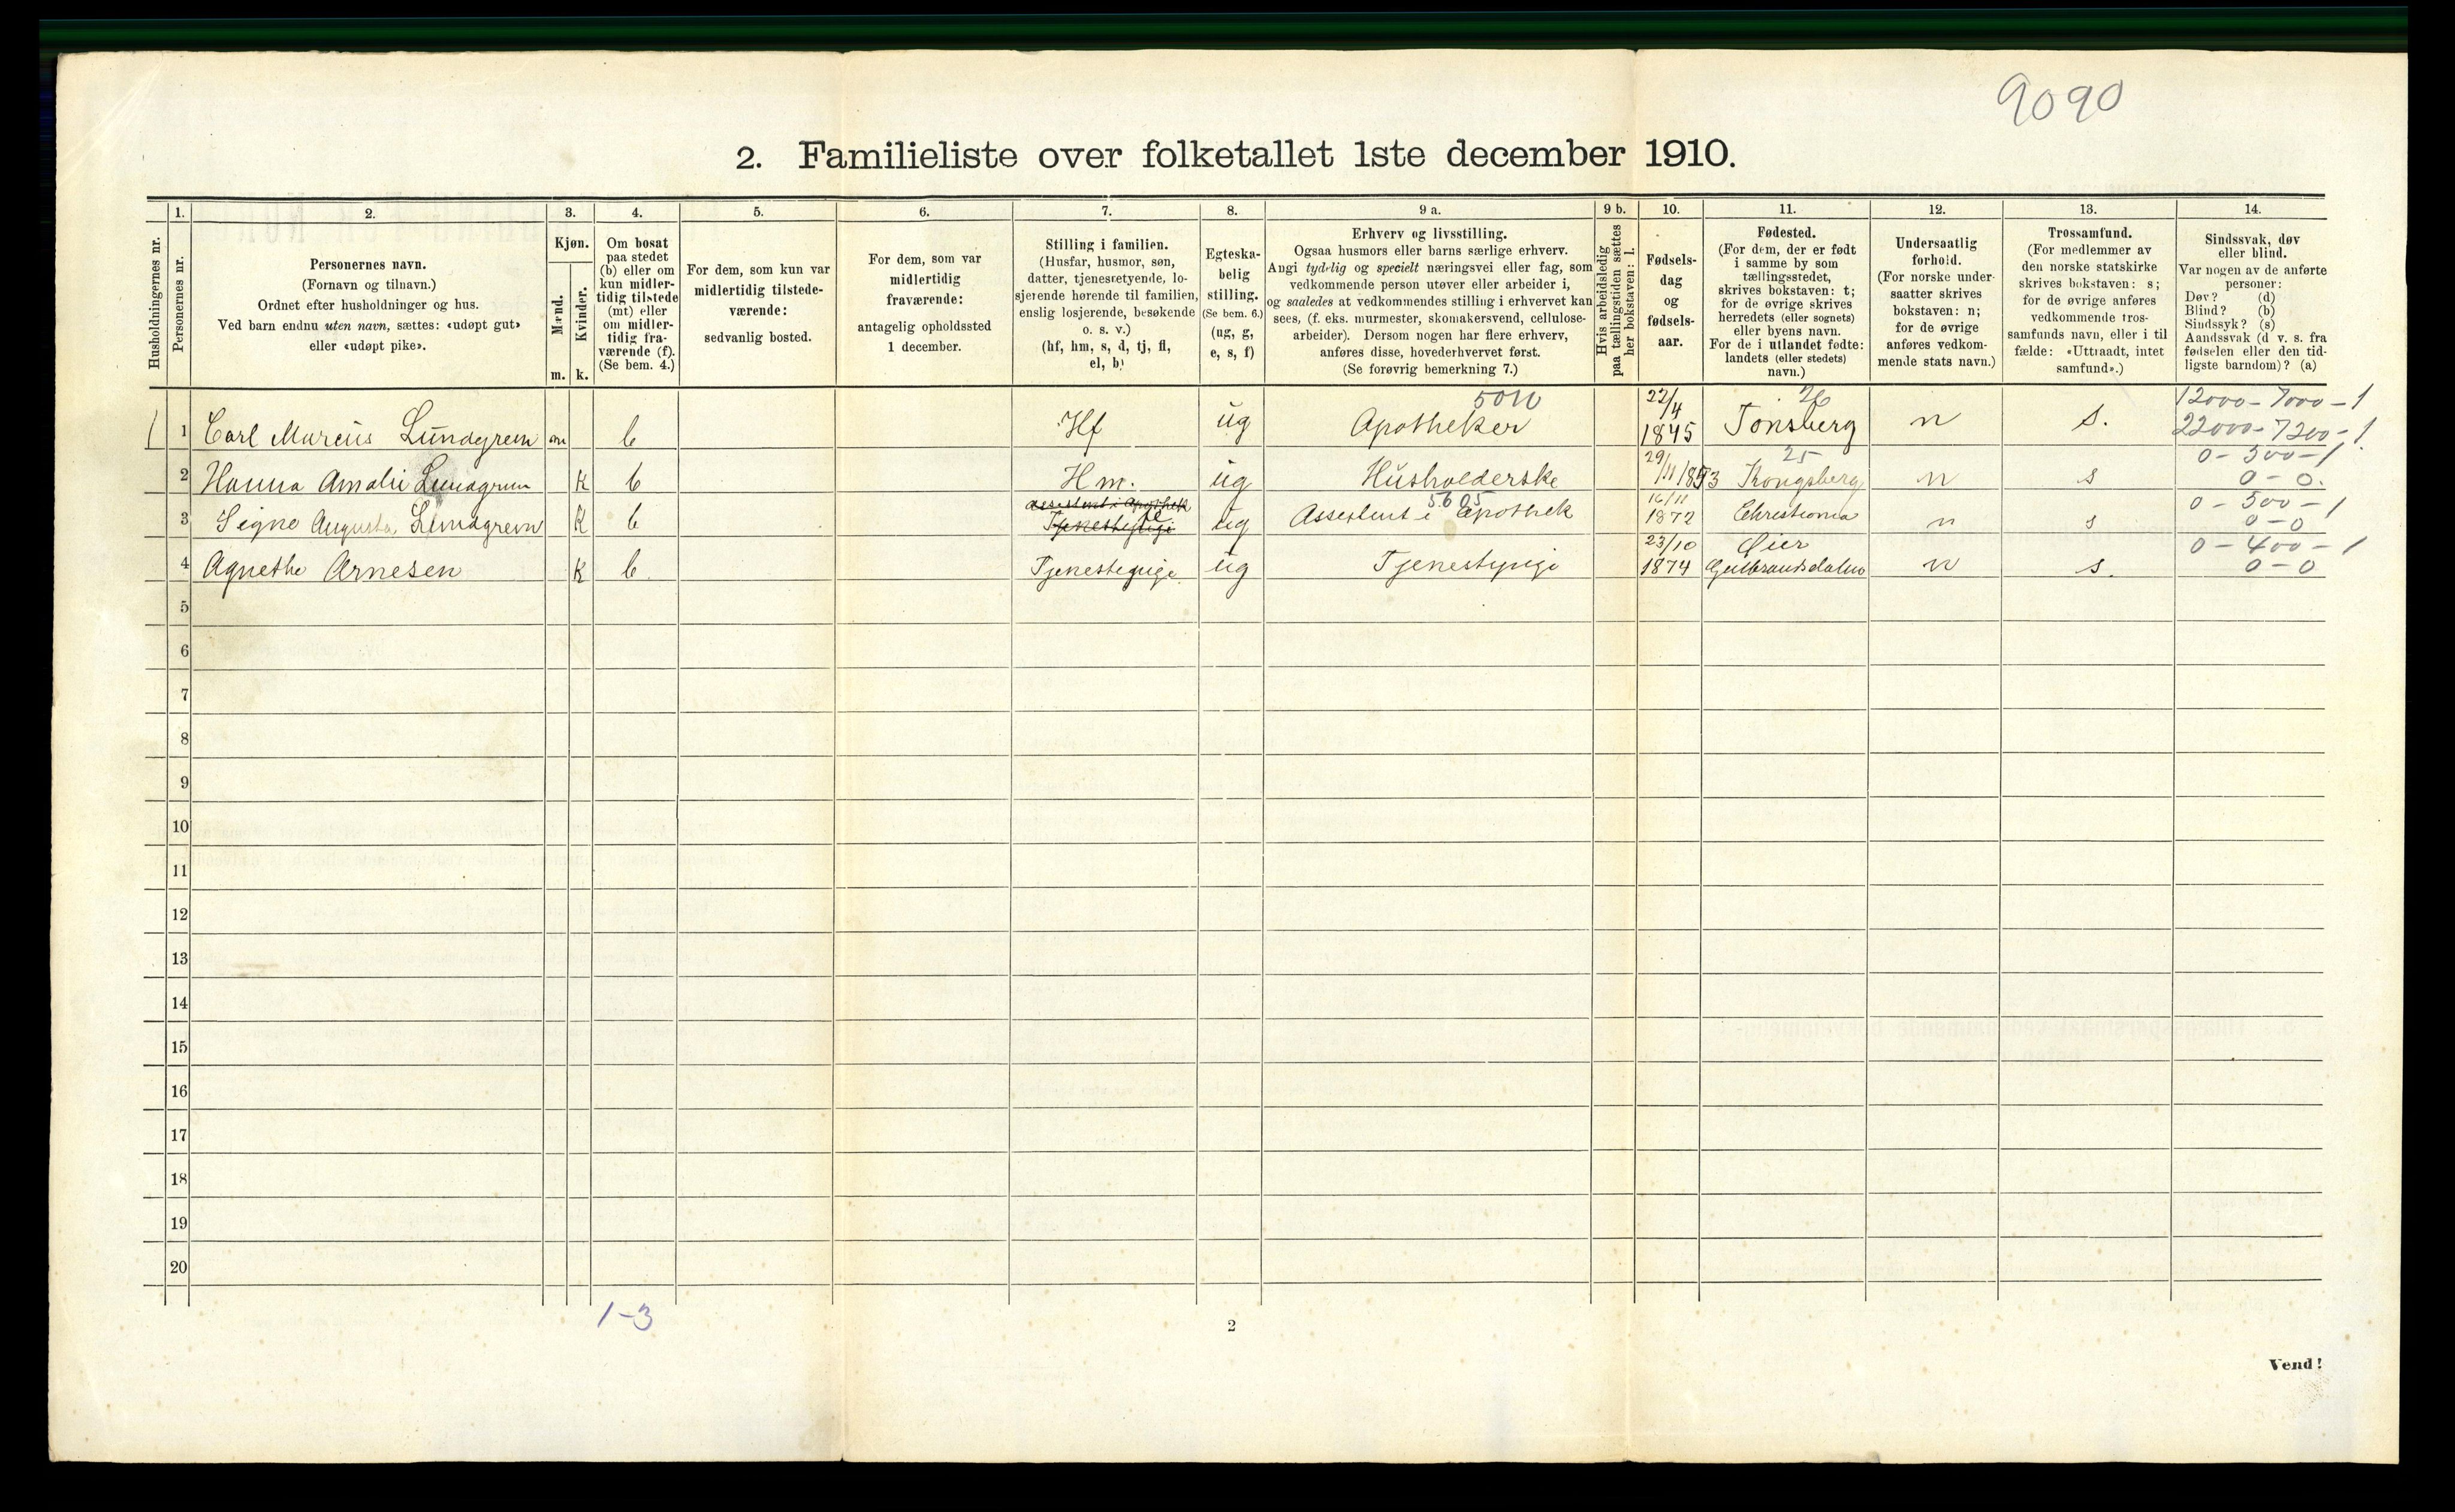 9090
2. Familieliste over folketallet 1ste december 1910.
1. 2. 3. 4. 5. 6. 7. 8. 9 a. 9 b. 10. 11. 12. 13. 14.
Husholdningernes nr.
Personernes nr.
Personernes navn.
(Fornavn og tilnavn.)
Ordnet efter husholdninger og hus.
Ved barn endnu uten navn, sættes: «udøpt gut»
eller «udøpt pike».
Kjøn.
Mænd.
Kvinder.
m. k.
Om bosat
paa stedet
(b) eller om
kun midler-
tidig tilstede
(mt) eller
om midler-
tidig fra-
værende (f).
(Se bem. 4.)
For dem, som kun var
midlertidig tilstede-
værende:
sedvanlig bosted.
For dem, som var
midlertidig
fraværende:
antagelig opholdssted
1 december.
Stilling i familien.
(Husfar, husmor, søn,
datter, tjenestetyende, lo-
sjerende hørende til familien,
enslig losjerende, besøkende
o. s. v.)
(hf, hm, s, d, tj, fl,
el, b)
Egteska-
belig
stilling.
(Se bem. 6.)
(ug, g,
e, s, f)
Erhverv og livsstilling.
Ogsaa husmors eller barns særlige erhverv.
Angi tydelig og specielt næringsvei eller fag, som
vedkommende person utøver eller arbeider i,
og saaledes at vedkommendes stilling i erhvervet kan
sees, (f. eks. murmester, skomakersvend, cellulose-
arbeider). Dersom nogen har flere erhverv,
anføres disse, hovederhvervet først.
(Se forøvrig bemerkning 7.)
Hvis arbeidsledig
paa tællingstiden sættes
her bokstaven: l.
Fødsels-
dag
og
fødsels-
aar.
Fødested.
(For dem, der er født
i samme by som
tællingsstedet,
skrives bokstaven: t;
for de øvrige skrives
herredets (eller sognets)
eller byens navn.
For de i utlandet fødte:
landets (eller stedets)
navn.)
Undersaatlig
forhold.
(For norske under-
saatter skrives
bokstaven: n;
for de øvrige
anføres vedkom-
mende stats navn.)
Trossamfund.
(For medlemmer av
den norske statskirke
skrives bokstaven: s;
for de øvrige anføres
vedkommende tros-
samfunds navn, eller i til
fælde: «Uttraadt, intet
samfund».)
Sindssvak, døv
eller blind.
Var nogen av de anførte
personer:
Døv? (d)
Blind? (b)
Sindssyk? (s)
Aandssvak (d v. s. fra
fødselen eller den tid-
ligste barndom)? (a)
26 12000 - 7000 - 1
1 1 Carl Marcus Lundgren m b Hf ug Apotheker 22/4 1845 Tønsberg n s. 22000 - 7200 - 1
25 0 - 300 - 1
2 Hanna Amalie Lundgren K b Hm. ug Husholderske 29/11 1853 Kongsberg n s 0 - 0.
assestent i Apothek 5605 0 - 500 - 1
3 Signe Augusta Lundgren K b Tjenestepige ug Assestent i Apothek 16/11 1872 Christiania n s 0 - 0
0 - 400 - 1
4 Agnethe Arnesen K b. Tjenestepige ug Tjenestepige 23/10 1874 Øier Gulbrandsdalen n s. 0 - 0
5
6
7
8
9
10
11
12
13
14
15
16
17
18
19
20
1-3
2
Vend!